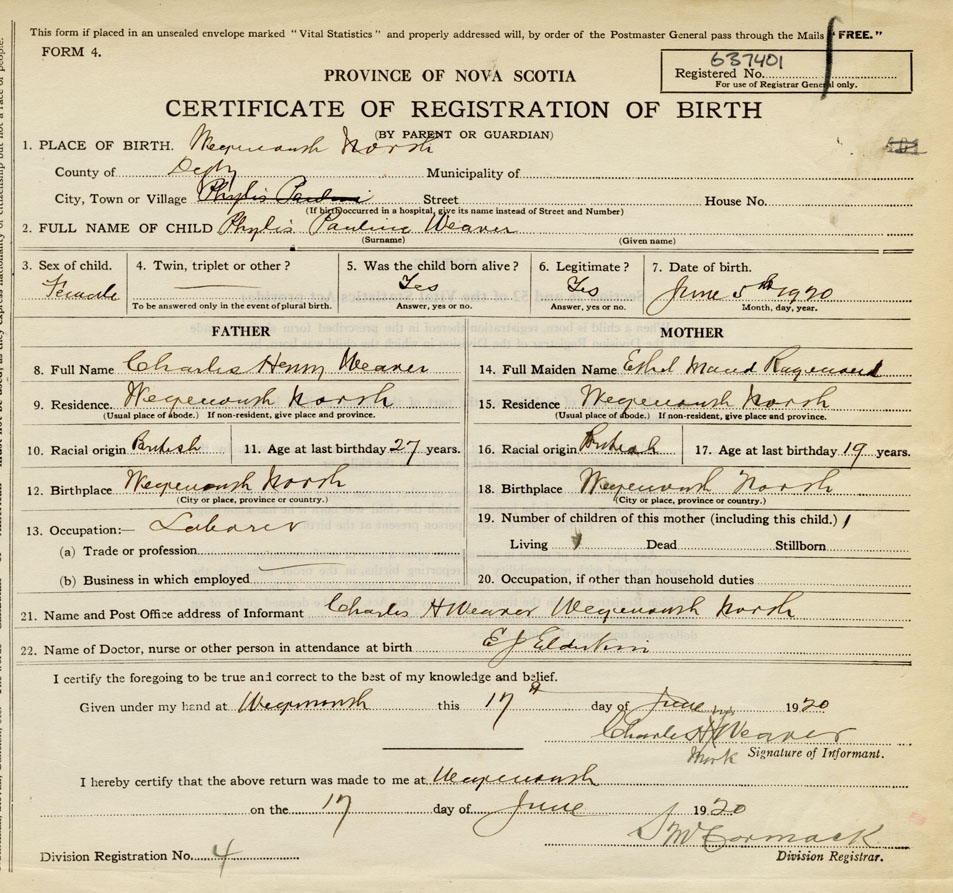 This form if placed in an unsealed envelope marked "Vital Statistics" and properly addressed will, by order of the Postmaster General pass through the Mails "FREE."
FORM 4.
637401
Registered No.
For use of Registrar General only.
PROVINCE OF NOVA SCOTIA
CERTIFICATE OF REGISTRATION OF BIRTH
(BY PARENT OR GUARDIAN)
1. PLACE OF BIRTH. Weymouth North
County of Digby Municipality of
City, Town or Village Phylis Pauline Street House No.
(If birth occurred in a hospital, give its name instead of Street and Number)
2. FULL NAME OF CHILD Phylis Pauline Weaver
(Surname) (Given name)
3. Sex of child. 4. Twin, triplet or other? 5. Was the child born alive? 6. Legitimate? 7. Date of birth.
Female Yes Yes June 5th 1920
To be answered only in the event of plural birth. Answer, yes or no. Answer, yes or no. Month, day, year.
FATHER MOTHER
8. Full Name Charles Henry Weaver 14. Full Maiden Name Ethel Maud
9. Residence. Weymouth North 15. Residence Weymouth North
(Usual place of abode.) If non-resident, give place and province. (Usual place of abode.) If non-resident, give place and province.
10. Racial origin British 11. Age at last birthday 27 years. 16. Racial origin British 17. Age at last birthday 19 years.
12. Birthplace Weymouth North 18. Birthplace Weymouth North
(City or place, province or country.) (City or place, province or country.)
13. Occupation:— Laborer 19. Number of children of this mother (including this child.) 1
(a) Trade or profession Living 1 Dead Stillborn
(b) Business in which employed 20. Occupation, if other than household duties
21. Name and Post Office address of Informant Charles H Weaver Weymouth North
22. Name of Doctor, nurse or other person in attendance at birth E J Elderkin
I certify the foregoing to be true and correct to the best of my knowledge and belief.
Given under my hand at Weymouth this 17 day of June 1920
Charles H Weaver
Mark Signature of Informant.
I hereby certify that the above return was made to me at Weymouth
on the 17 day of June 1920
McCormack
Division Registration No. 4 Division Registrar.